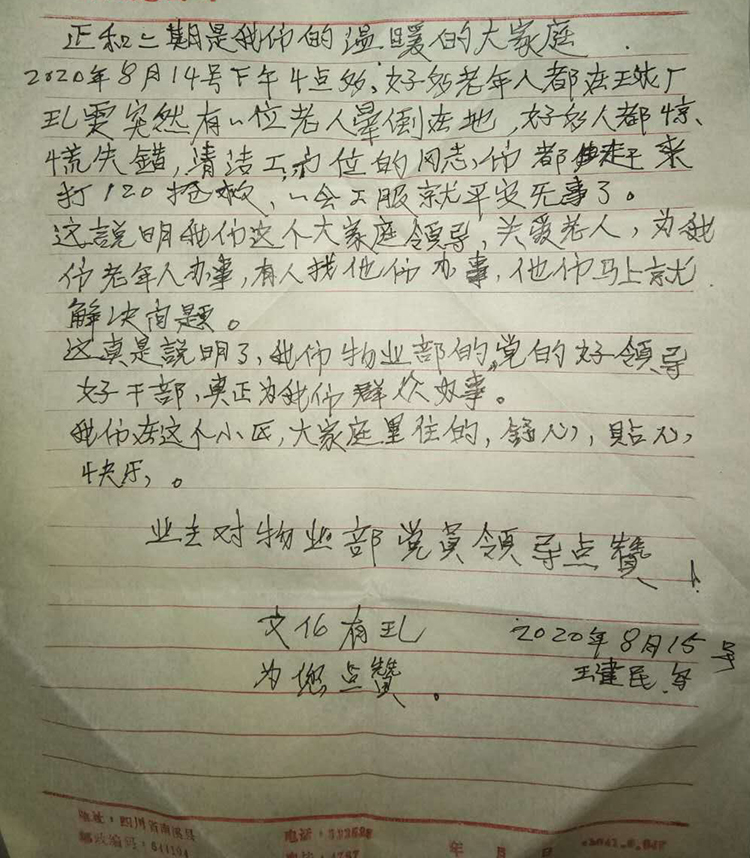 正和二期是我们的温暖的大家庭
2020年8月14号下午4点多、好多老年人都在玩
耍突然有一位老人晕倒在地,好多人都惊
慌失错,清洁工、方位的同志们都赶来
打120抢救、一会工服就平安无事了。
这説明我们这个大家庭領导,关爱老人,为我
们老年人办事,有人找他们办事,他们马上就
解决问题。
这真是説明了,我们物业部的党的好領导
好干部,真正为我们群众办事。
我们在这个小区,大家庭里住的,舒心,贴心,
快乐,。
业主对物业部党員領导点赞
文化有
为您点赞。
2020年8月15号
王建民
地址:四川省南溪县
邮政编码:
电话:
年 月 日